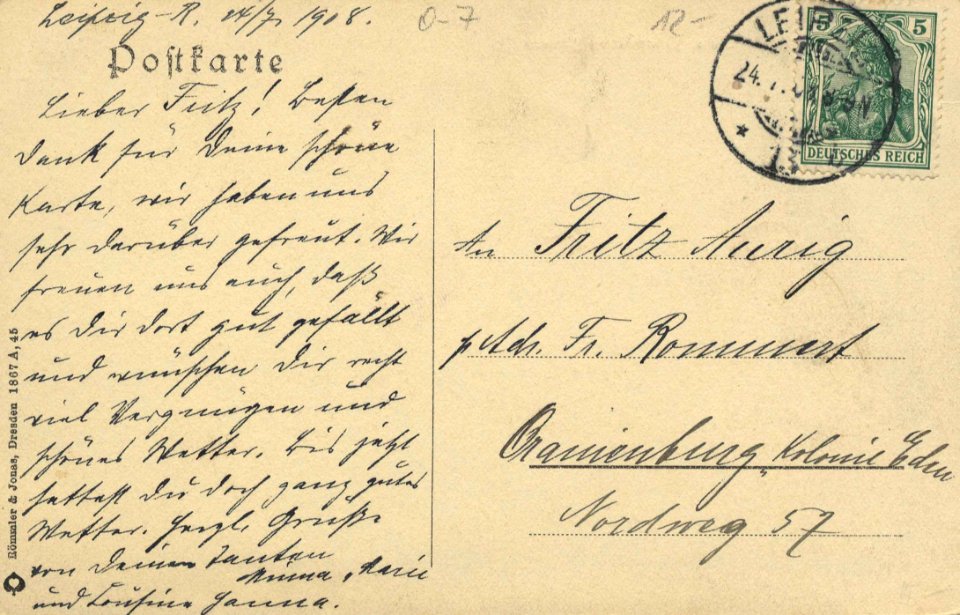 Leipzig-R. 24/7. 1908.
0-7
12-
Postkarte
Lieber Fritz! Besten
Dank für Deine schöne
Karte, wir haben uns
sehr darüber gefreut. Wir
freuen uns auch, daß
es Dir dort gut gefällt
und wünschen Dir recht
viel Vergnügen und
schönes Wetter. Bis jetzt
hattest Du doch ganz gutes
Wetter. Herzl. Grüße
von Deinen Tanten
Minna, Marie
und Cousine Hanna.
Römmler & Jonas, Dresden 1867 A, 45
LEIPZIG
24. 7. 8-9N
13
5 5
DEUTSCHES REICH
An Fritz Aurig
p. Adr. Fr. Rommert
Oranienburg, Kolonie Eden
Nordweg 57